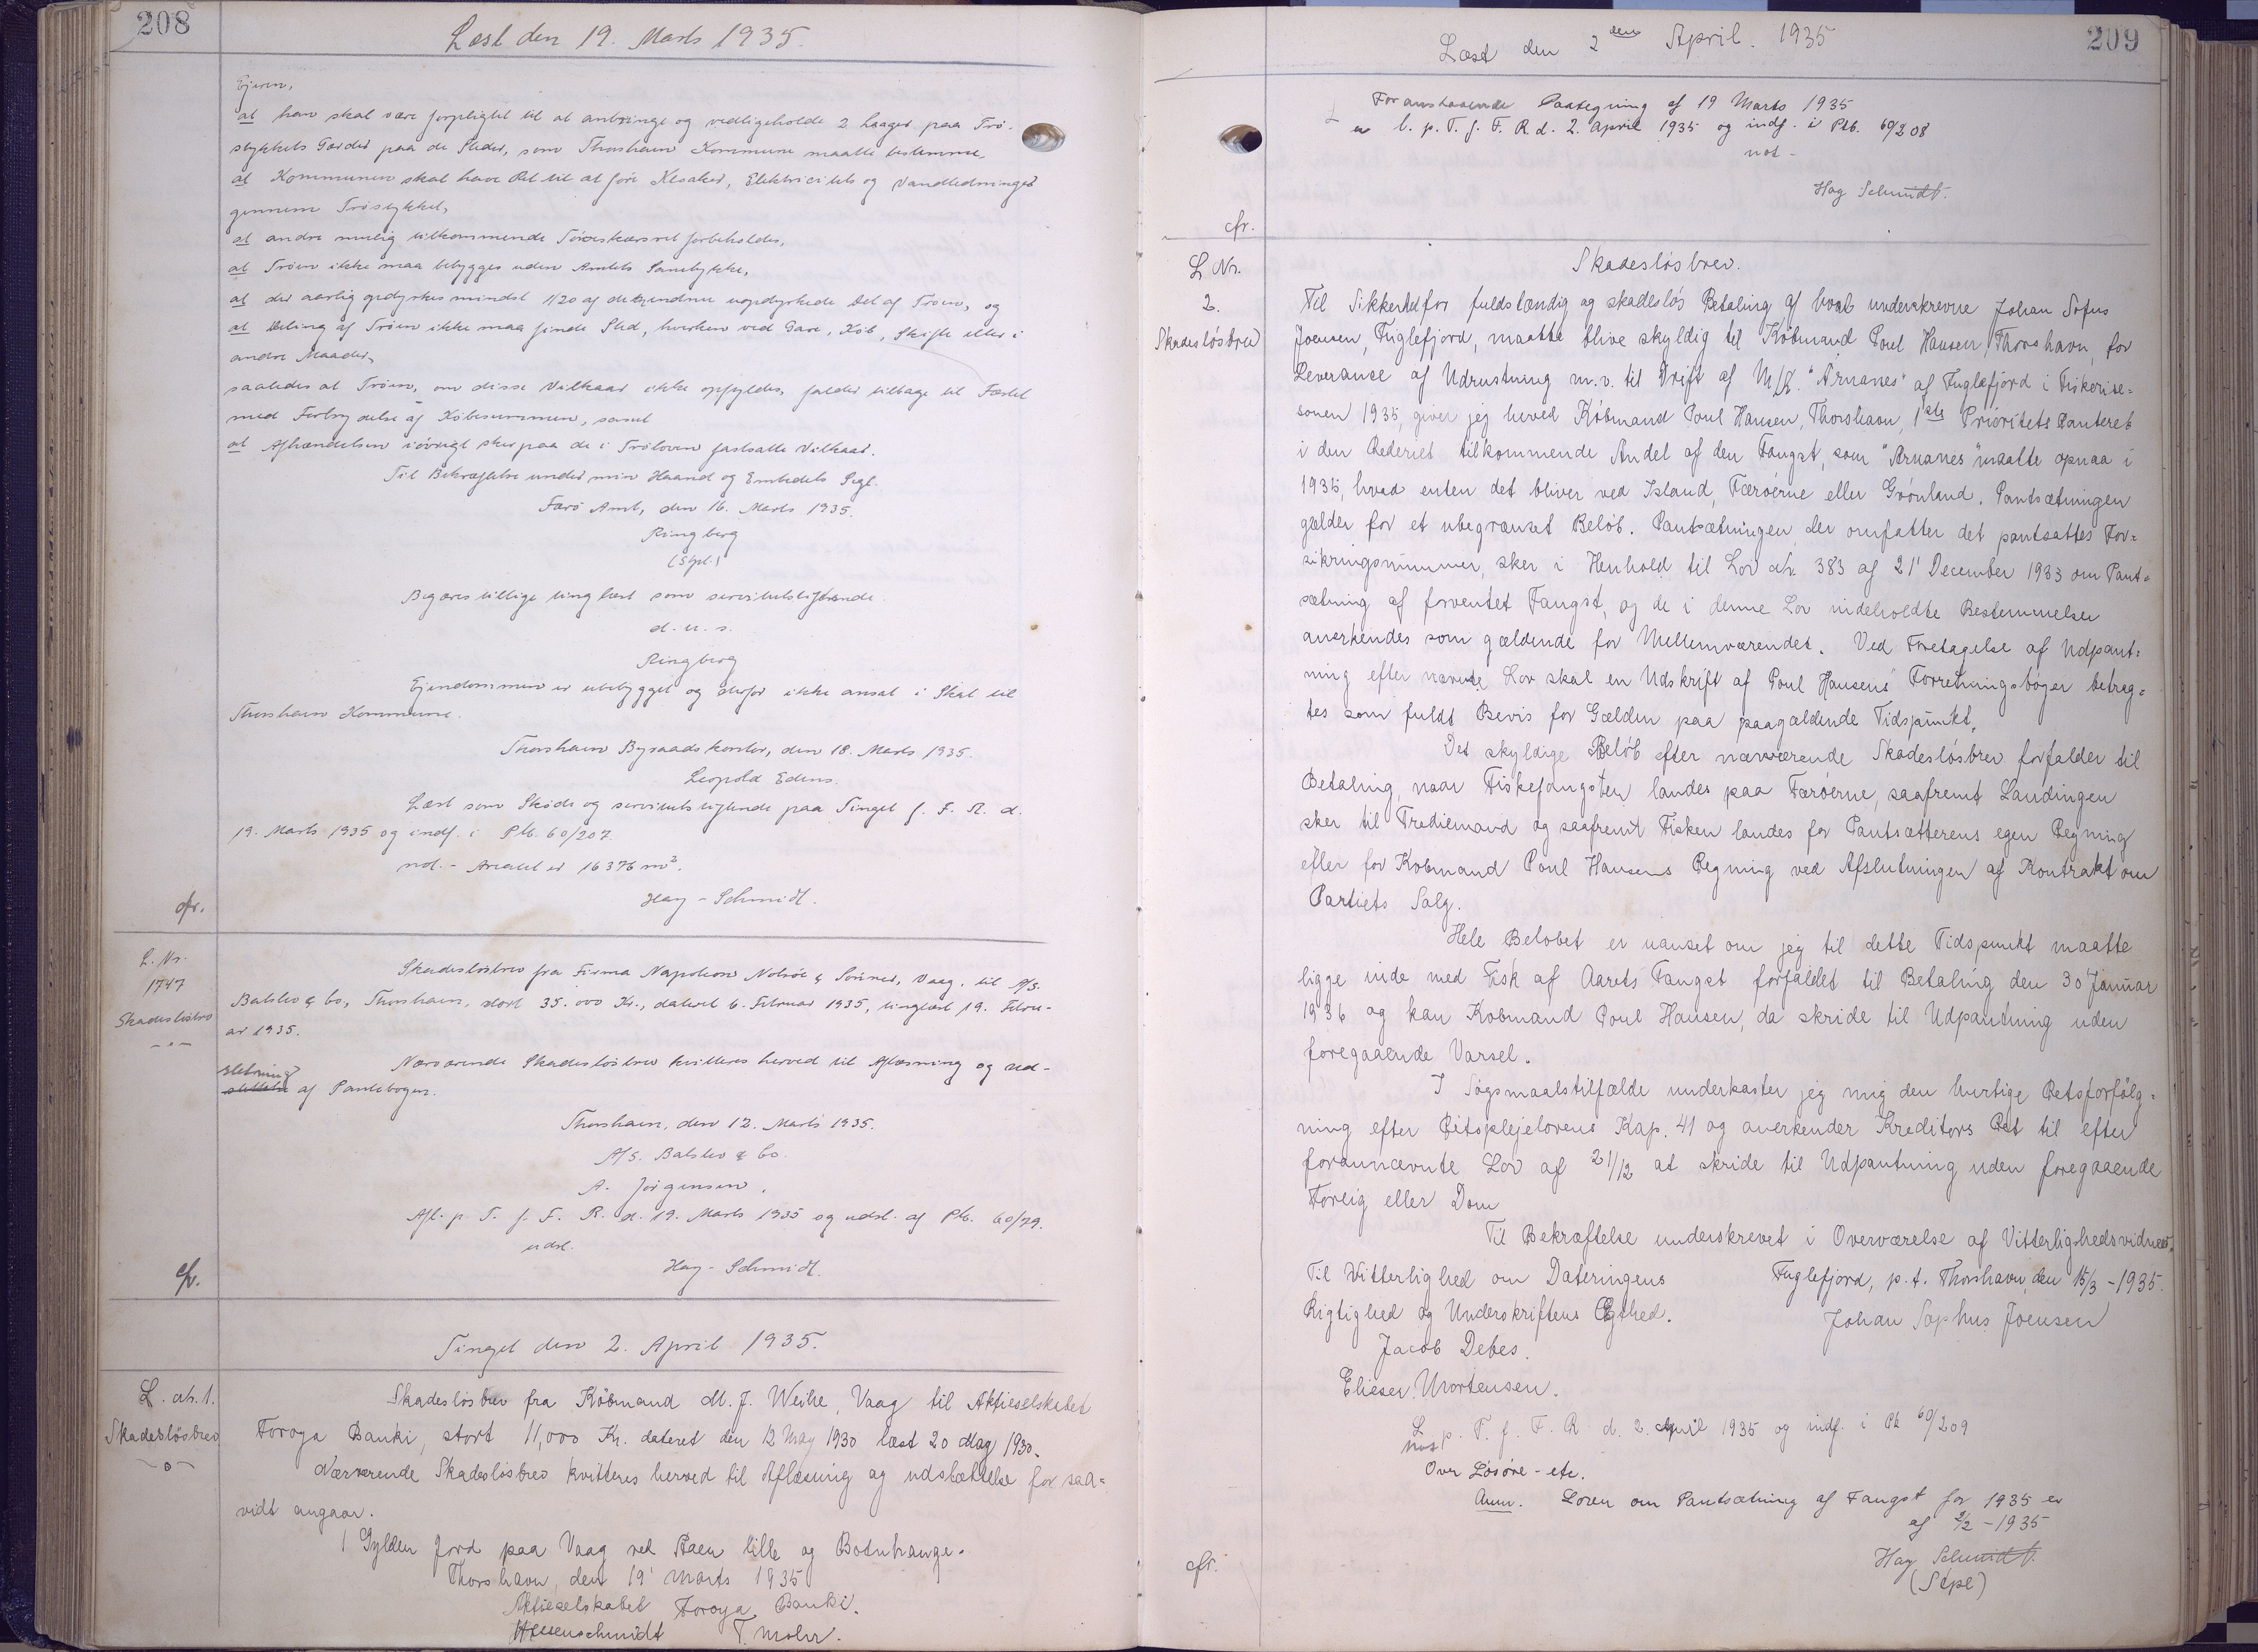 208
Læst den 19. Marts 1935.
Ejeren,
at han skal være forpligtet til at anbringe og vedligeholde 2 Laager paa Trö-
stykkets Gærder paa de Steder, som Thorshavn Kommune maatte bestemme,
at Kommunen skal have Ret til at före Kloaker, Elektricitets og Vandledninger
gennem Tröstykket,
at andre mulig tilkommende Törveskærsret forbeholdes,
at Tröen ikke maa bebygges uden Amtets Samtykke,
at der aarlig opdyrkes mindst 1/20 af det endnu uopdyrkede Del af Tröen, og
at Deling af Tröen ikke maa finde Sted, hverken ved Gave, Köb, Skifte eller i
andre Maader,
saaledes at Tröen, om disse Vilkaar ikke opfyldes, falder tilbage til Fæstet
med Fortrydelse af Köbesummen, samt
at Afhændelsen iövrigt sker paa de i Tröloven fastsatte Vilkaar.
Til Bekræftelse under min Haand og Embedets Segl.
Færö Amt, den 16. Marts 1935.
Ringberg
(Sgpl.)
Begæres tillige tinglæst som servitutstiftende.
d. u. s.
Ringberg
Ejendommen er ubebygget og derfor ikke ansat i Skat til
Thorshavn Kommune.
Thorshavn Byraadskontor, den 18. Marts 1935.
Leopold Edens.
Læst som Sköde og servitutstiftende paa Tinget f. F. R. d.
19. Marts 1935 og indf. i Ptb. 60/207.
not. - Arealet er 16376 m².
Hay-Schmidt.
cfr.
L. Nr.
1747
Skadeslösbrev
-o-
Skadeslösbrev fra Firma Napoleon Nolsöe & Sönner, Vaag, til A/S.
Balslev & Co, Thorshavn, stort 35.000 Kr., dateret 6. Februar 1935, tinglæst 19. Febru-
ar 1935.
Nærværende Skadeslösbrev kvitteres herved til Aflæsning og Ud-
sletning
af Pantebogen.
Thorshavn, den 12. Marts 1935.
A/S. Balslev & Co.
A. Jörgensen.
Afl. p. T. f. F. R. d. 19. Marts 1935 og udsl. af Ptb. 60/79.
udsl.
Hay-Schmidt.
cfr.
Tinget den 2. April 1935.
L. nr. 1.
Skadeslösbrev
-o-
Skadeslösbrev fra Köbmand M. J. Weihe, Vaag til Aktieselskabet
Foroya Banki, stort 11,000 Kr. dateret den 12 May 1930 læst 20 May 1930.
Nærværende Skadeslösbrev kvitteres herved til Aflæsning og udslættelse for saa-
vidt angaar.
1 Gylden Jord paa Vaag ved Aaen lille og Botnhange.
Thorshavn, den 19' Marts 1935
Aktieselskabet Foroya Banki.
T. Mohr.
209
Læst den 2den April. 1935
Foranstaaende Paategning af 19 Marts 1935
er l. p. T. f. F. R. d. 2. April 1935 og indf. i Ptb. 60/208
not -
Hay Schmidt.
cfr.
L Nr.
2.
Skadeslösbrev
Skadeslösbrev.
Til Sikkerhed for fuldstændig og skadeslös Betaling af hvad underskrevne Johan Sofus
Joensen, Fuglefjord, maatte blive skyldig til Köbmand Poul Hansen, Thorshavn, for
Leverance af Udrustning m.v. til Drift af M/K. "Arnanes" af Fuglefjord i Fiskerise=
sonen 1935, giver jeg herved Köbmand Poul Hansen, Thorshavn, 1ste Prioritets Panteret
i den Rederiet tilkommende Andel af den Fangst, som "Arnanes" maatte opnaa i
1935, hvad enten det bliver ved Island, Færöerne eller Grönland. Pantsætningen
gælder for et ubegrænset Belöb. Pantsætningen, der omfatter det pantsattes For=
sikringssummer, sker i Henhold til Lov nr. 383 af 21' December 1933 om Pant=
sætning af forventet Fangst, og de i denne Lov indeholdte Bestemmelser
anerkendes som gældende for Mellemværendet. Ved Foretagelse af Udpant=
ning efter nævnte Lov skal en Udskrift af Poul Hansens Forretningsböger betrag=
tes som fuldt Bevis for Gælden paa paagældende Tidspunkt.
Det skyldige Belöb efter nærværende Skadeslösbrev forfalder til
Betaling, naar Fiskefangsten landes paa Færöerne, saafremt Landingen
sker til Trediemand og saafremt Fisken landes for Pantsætterens egen Regning
eller for Kobmand Poul Hansens Regning ved Afslutningen af Kontrakt om
Partiets Salg.
Hele Belobet er uanset om jeg til dette Tidspunkt maatte
ligge inde med Fisk af Aarets Fangst forfaldet til Betaling den 30 Januar
1936 og kan Kobmand Poul Hansen, da skride til Udpantning uden
foregaaende Varsel.
I Sögsmaalstilfælde underkaster jeg mig den hurtige Retsforfölg=
ning efter Retsplejelovens Kap. 41 og anerkender Kreditors Ret til efter
forannævnte Lov af 21/12 at skride til Udpantning uden foregaaende
Forlig eller Dom
Til Bekræftelse underskrevet i Overværelse af Vitterlighedsvidner.
Til Vitterlighed om Dateringens
Fuglefjord, p.t. Thorshavn, den 15/3 - 1935.
Rigtighed og Underskriftens Ægthed.
Johan Sophus Joensen
Jacob Debes.
Elieser Mortensen.
L p. T. f. F. R. d. 2. April 1935 og indf. i Pb 60/209
not
Over Lösöre - etc.
Anm. Loven om Pantsætning af Fangst for 1935 er
af 2/2 - 1935
Hay Schmidt.
(Stpl)
cfr.